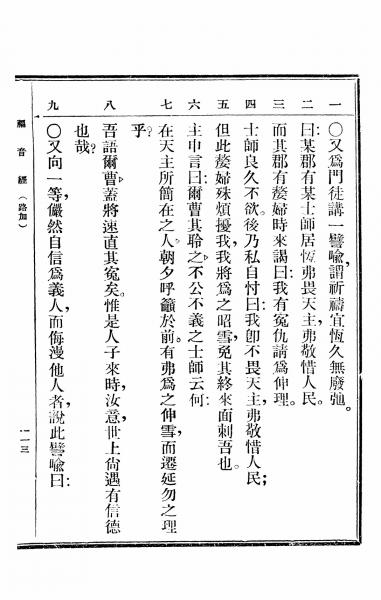 一 〇又爲門徒講一譬喻,謂祈禱宜恆久無廢弛。
二 曰:某郡有某士師居恆弗畏天主,弗敬惜人民。
三 而其郡有嫠婦時來謁曰:我有冤仇請爲伸理。
四 士師良久不欲。後乃私自忖曰:我卽不畏天主,弗敬惜人民;
五 但此嫠婦殊煩擾我,我將爲之昭雪,免其終來面刺吾也。
六 主申言曰:爾曹其聆之,不公不義之士師云何:
七 在天主所簡在之人,朝夕呼籲於前。有弗爲之伸雪,而遷延勿之理
乎?
八 吾語爾曹,蓋將速直其冤矣。惟是人子來時,汝意,世上尙遇有信德
也哉?
九 〇又向一等,儼然自信爲義人,而侮漫他人者,說此譬喻曰:
福音經(路加)
二一三